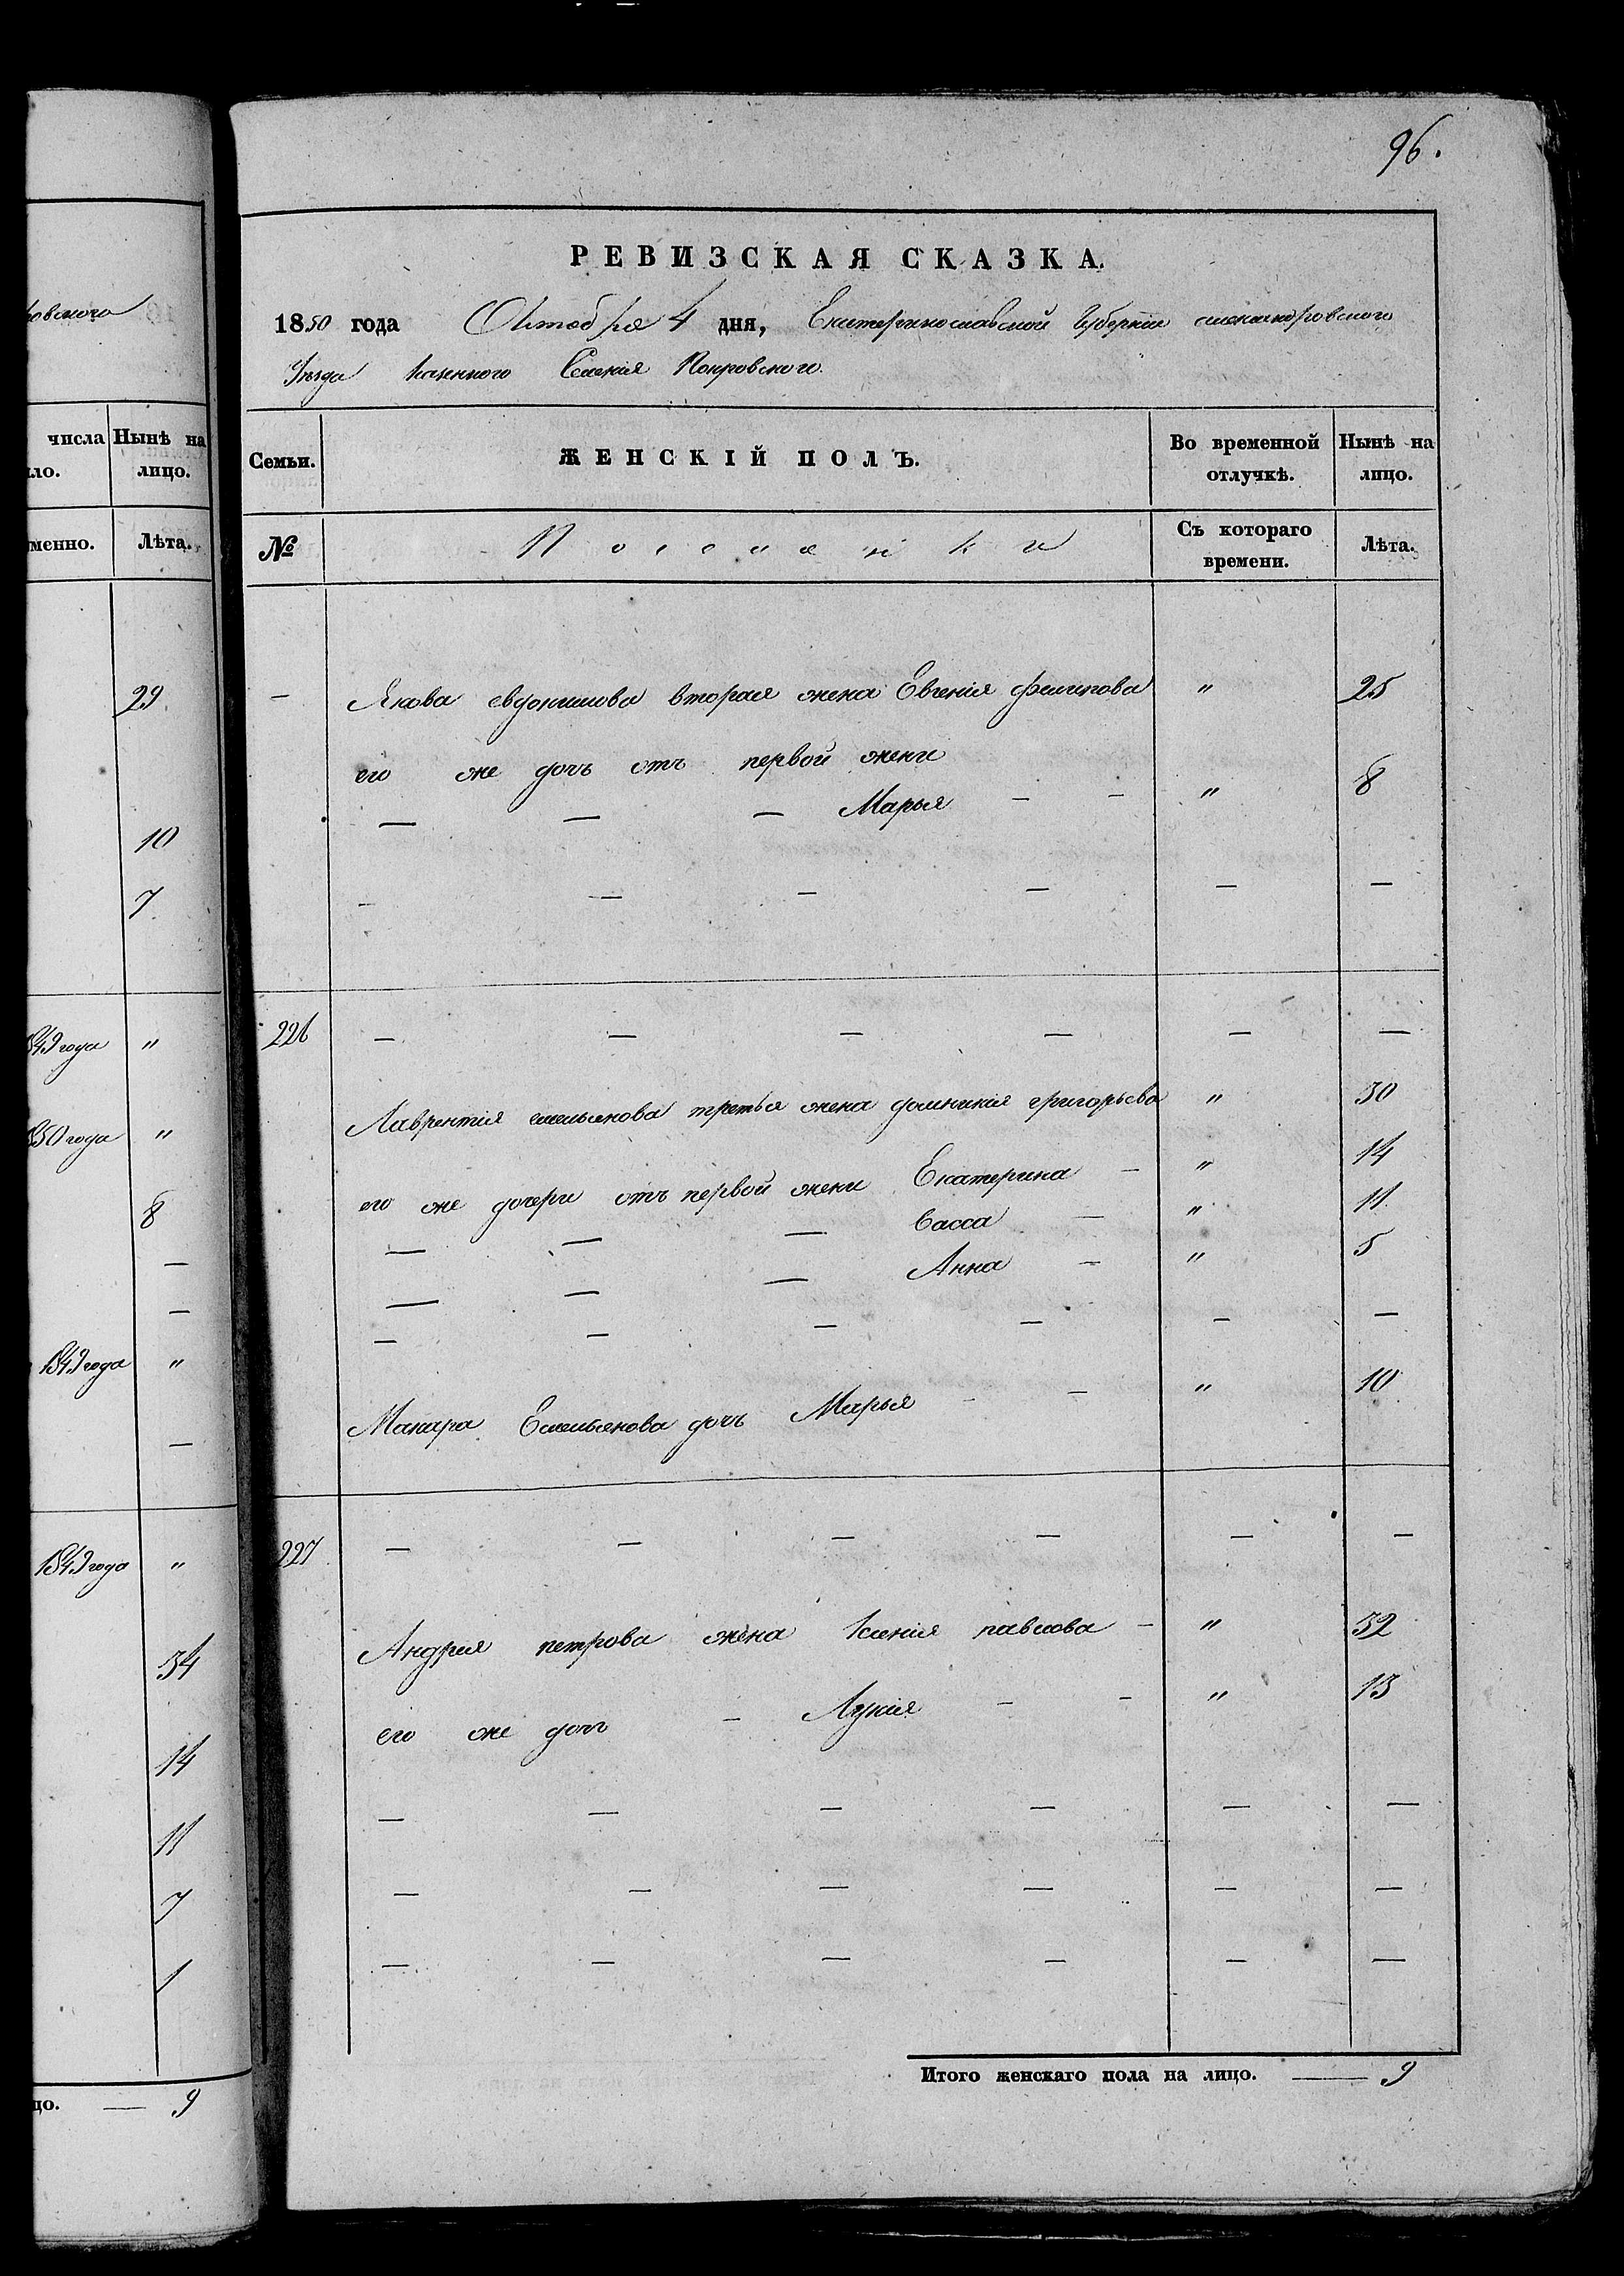 96.
РЕВИЗСКАЯ СКАЗКА.
1850 года Октября 4 дня, Екатеринославской Губернiи александровского
Уѣзда казенного Селенiя Покровского.
Семьи. ЖЕНСКIЙ ПОЛЪ. Во временной отлучкѣ. Нынѣ на лицо.
№ Поселянки Съ котораго времени. Лѣта.
— Якова евдокимова вторая жена Евгенiя филипова " 25
его же дочь отъ первой жены
— — — Марья — — " 8
— — — — — —
226 — — — — — —
Лаврентiя емельянова третья жена домникiя григорьева " 30
его же дочери отъ первой жены Екатерина — " 14
— — — Васса — " 11
— — — Анна — " 5
— — — — — —
Макара Емельянова дочь Марья — — " 10
227 — — — — — —
Андрея петрова жена Ксенiя павлова — " 32
его же дочь — Лукiя — — " 13
— — — — — —
— — — — — —
— — — — — —
Итого женскаго пола на лицо. — 9
ровского
числа Нынѣ на
ло. лицо.
менно. Лѣта.
29
10
7
849 года "
850 года "
8
—
—
1849 года "
—
1849 года "
34
14
11
7
1
цо. — 9